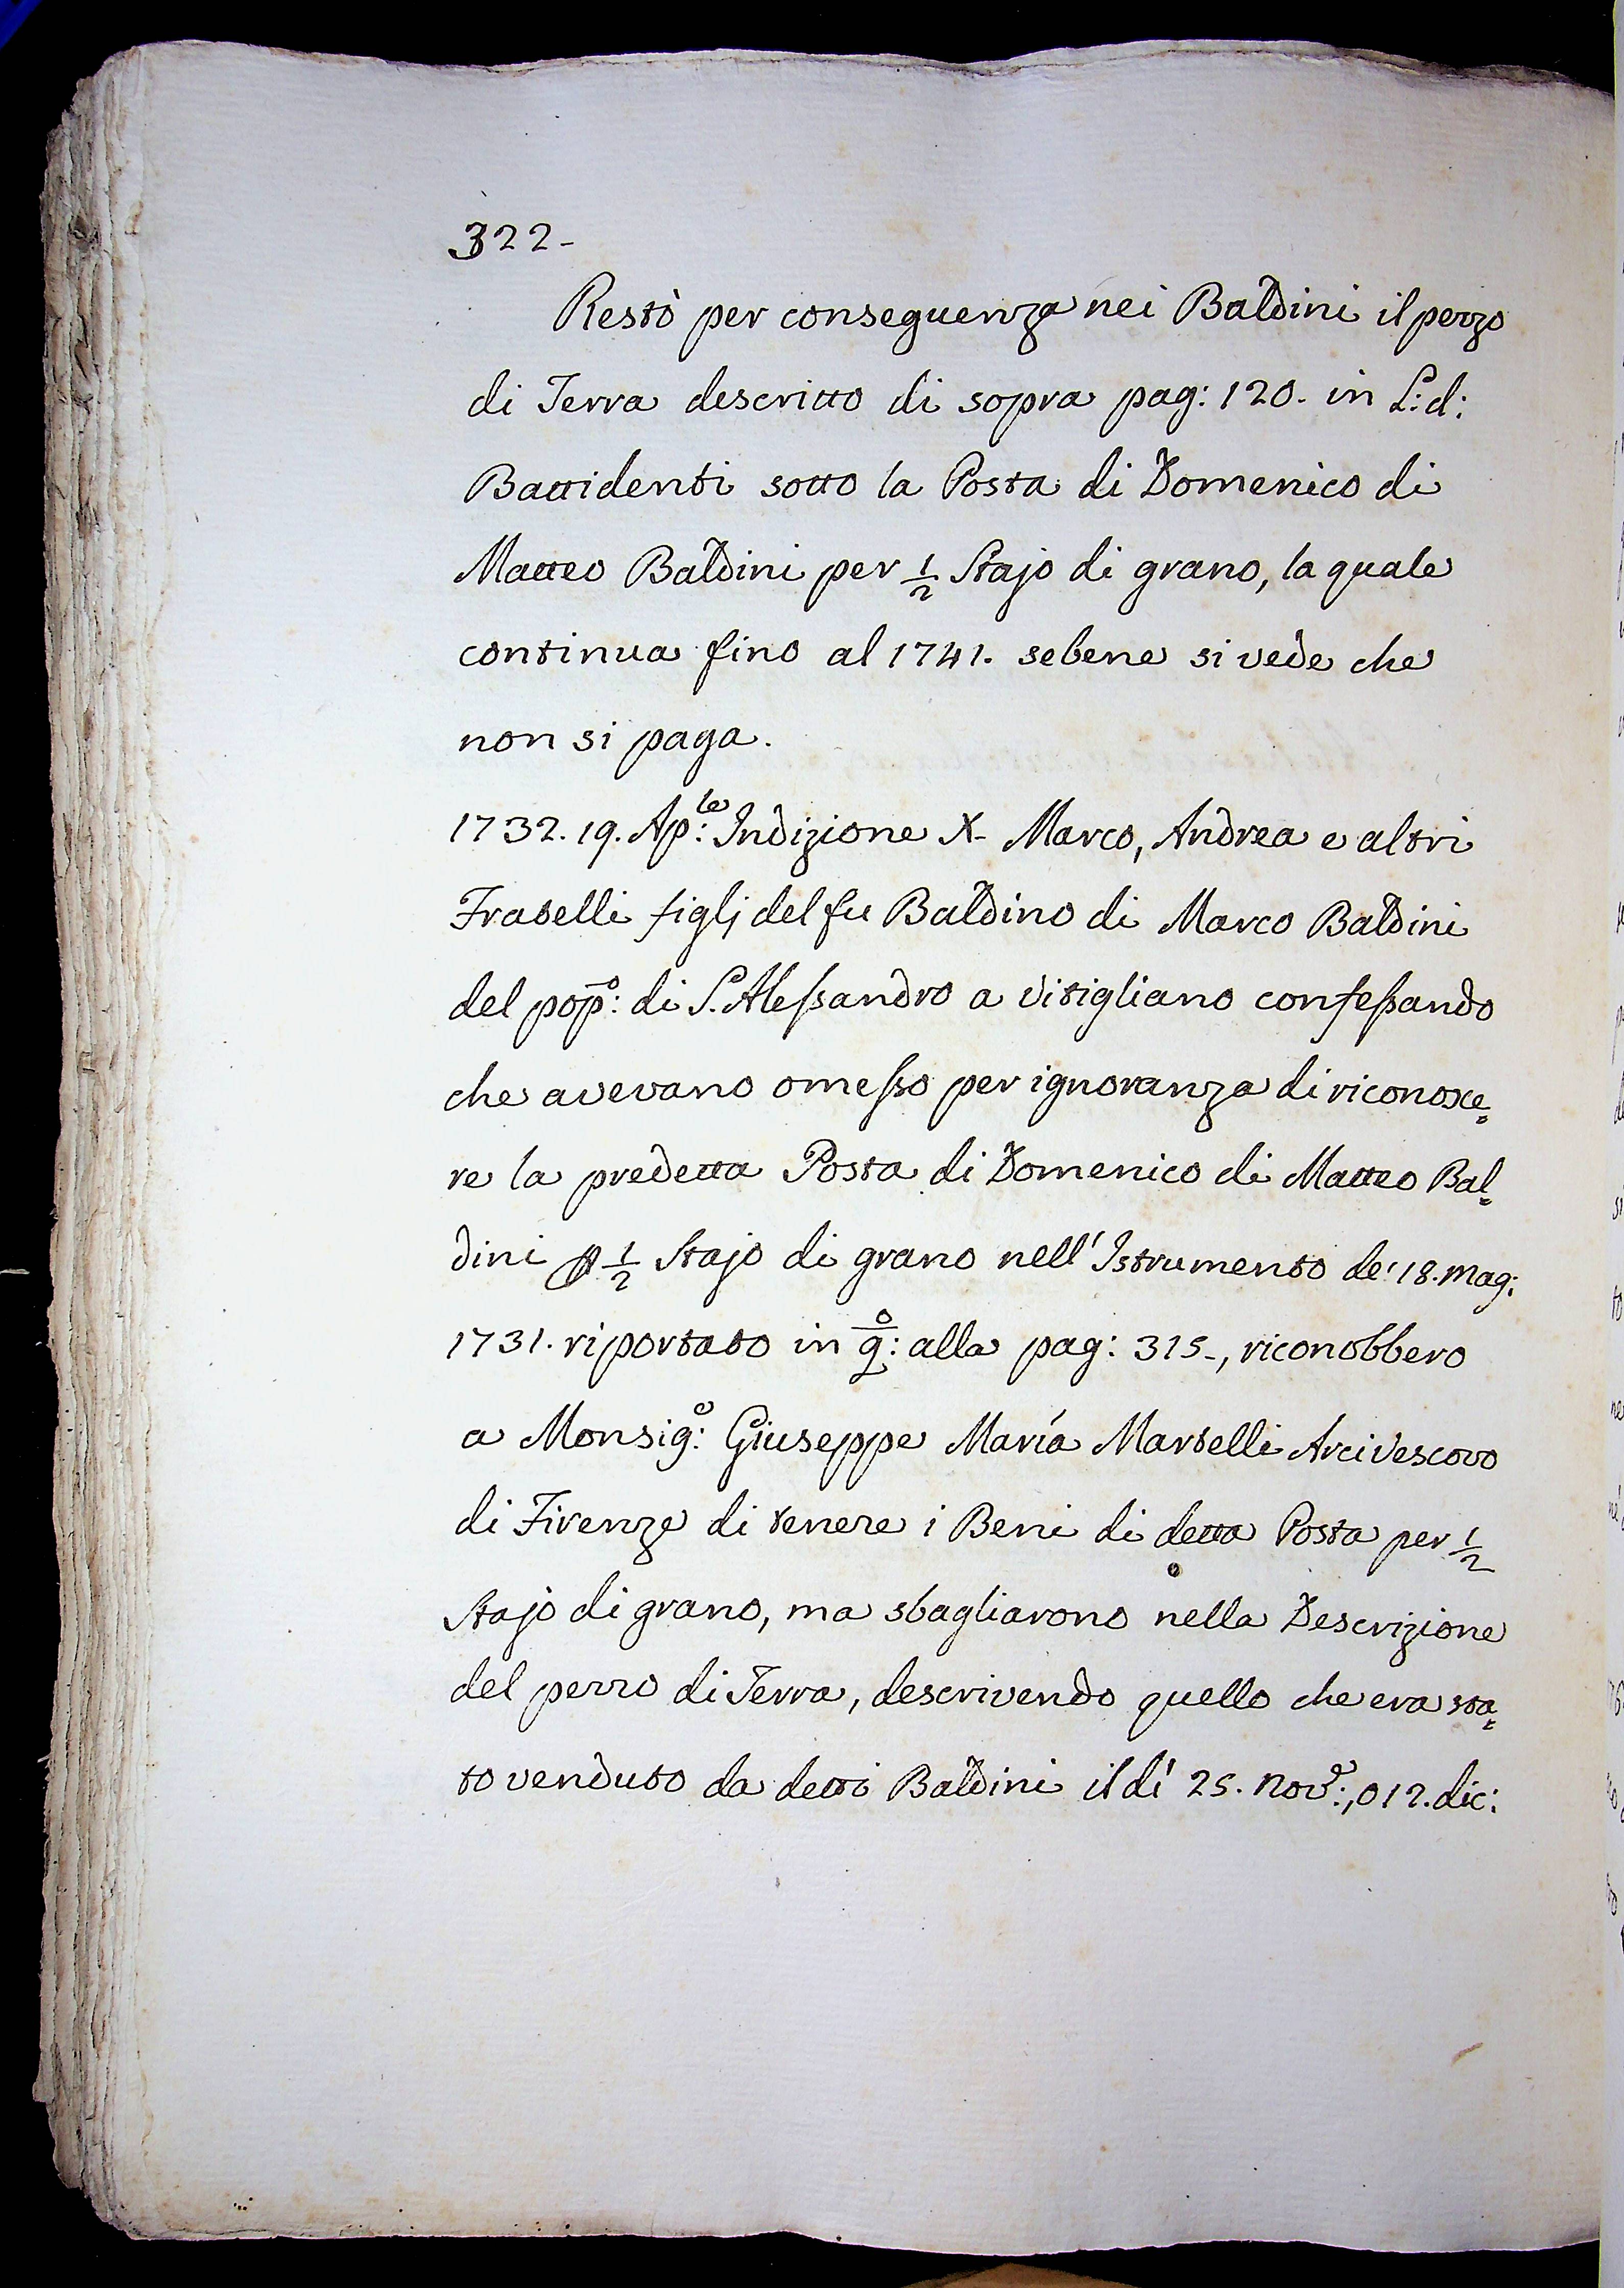 322-
Restò per conseguenza nei Baldini il pezzo
di Terra descritto di sopra pag: 120. in L: d:
Battidenti sotto la Posta di Domenico di
Matteo Baldini per ½ Stajo di grano, la quale
continua fino al 1741. sebene si vede che
non si paga.
1732. 19. Ap:le Indizione X- Marco, Andrea e altri
Fratelli figlj del fu Baldino di Marco Baldini
del popo: di S. Alessandro a Vitigliano confessando
che avevano omesso per ignoranza di riconosce=
re la predetta Posta di Domenico di Matteo Bal=
dini p ½ Stajo di grano nell' Istrumento de' 18. Mag:
1731. riportato in qo: alla pag: 315-, riconobbero
a Monsig:e Giuseppe María Martelli Arcivescovo
di Firenze di tenere i Beni di detta Posta per ½
Stajo di grano, ma sbagliarono nella Descrizione
del pezzo di Terra, descrivendo quello che era sta=
to venduto da detti Baldini il dí 25. Nov:e, o 12. dic: